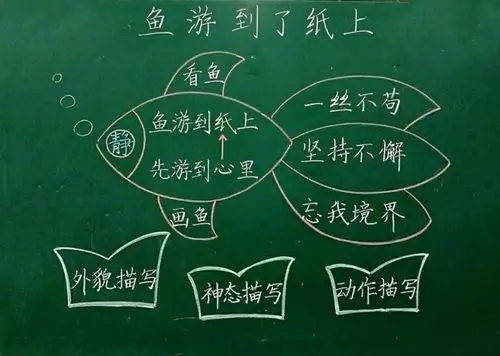 鱼游到了纸上
看鱼
静
鱼游到纸上
先游到心里
画鱼
一丝不苟
坚持不懈
忘我境界
外貌描写
神态描写
动作描写